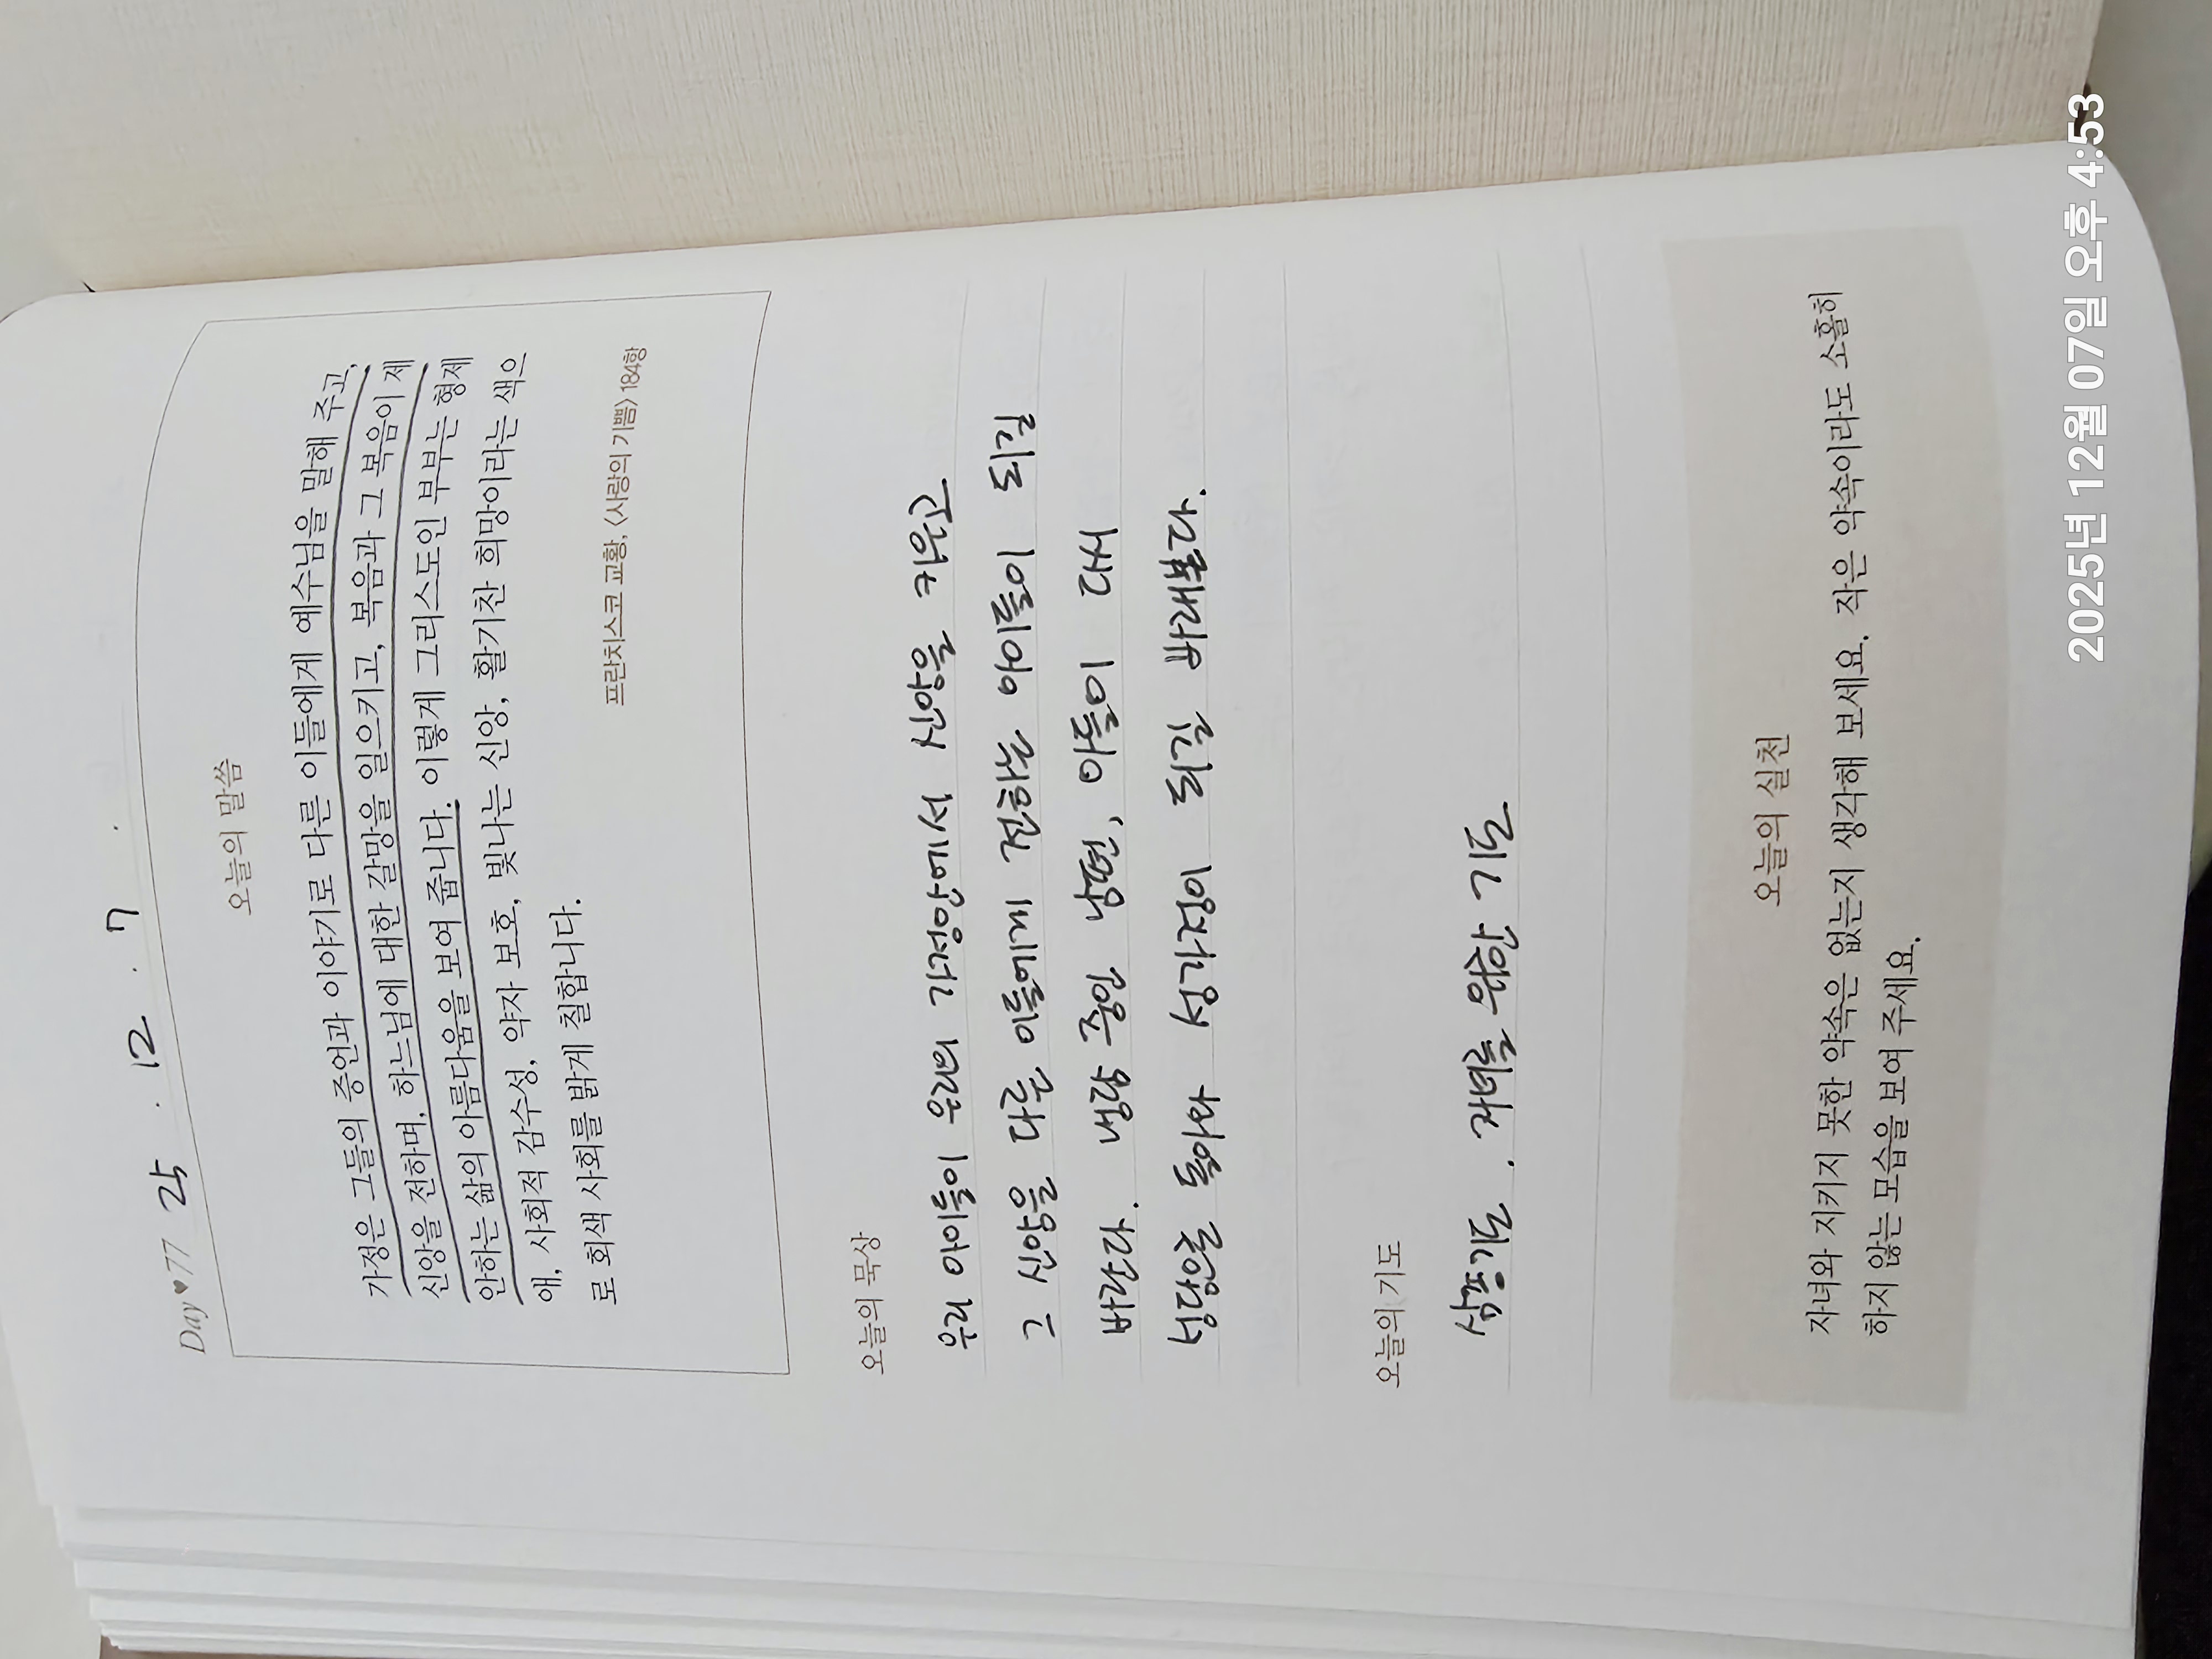 Day♥77 25 . 12 . 7
오늘의 말씀
가정은 그들의 증언과 이야기로 다른 이들에게 예수님을 말해 주고,
신앙을 전하며, 하느님에 대한 갈망을 일으키고, 복음과 그 복음이 제
안하는 삶의 아름다움을 보여 줍니다. 이렇게 그리스도인 부부는 형제
애, 사회적 감수성, 약자 보호, 빛나는 신앙, 활기찬 희망이라는 색으
로 회색 사회를 밝게 칠합니다.
프란치스코 교황, 〈사랑의 기쁨〉 184항
오늘의 묵상
우리 아이들이 우리의 가정안에서 신앙을 키운고
그 신앙을 다른 이들에게 전하는 아이들이 되길
바란다. 냉담 중인 남편, 아들이 다시
성당으로 돌아와 성가정이 되길 바래본다.
오늘의 기도
삼종기도 . 자녀를 위한 기도
오늘의 실천
자녀와 지키지 못한 약속은 없는지 생각해 보세요. 작은 약속이라도 소홀히
하지 않는 모습을 보여 주세요.
2025년 12월 07일 오후 4:53